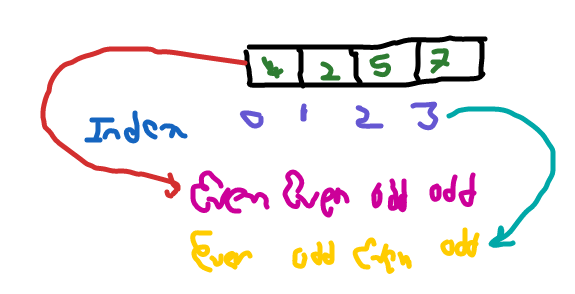 2 5 7
Index 0 1 2 3
Even Even odd odd
Even odd Even odd